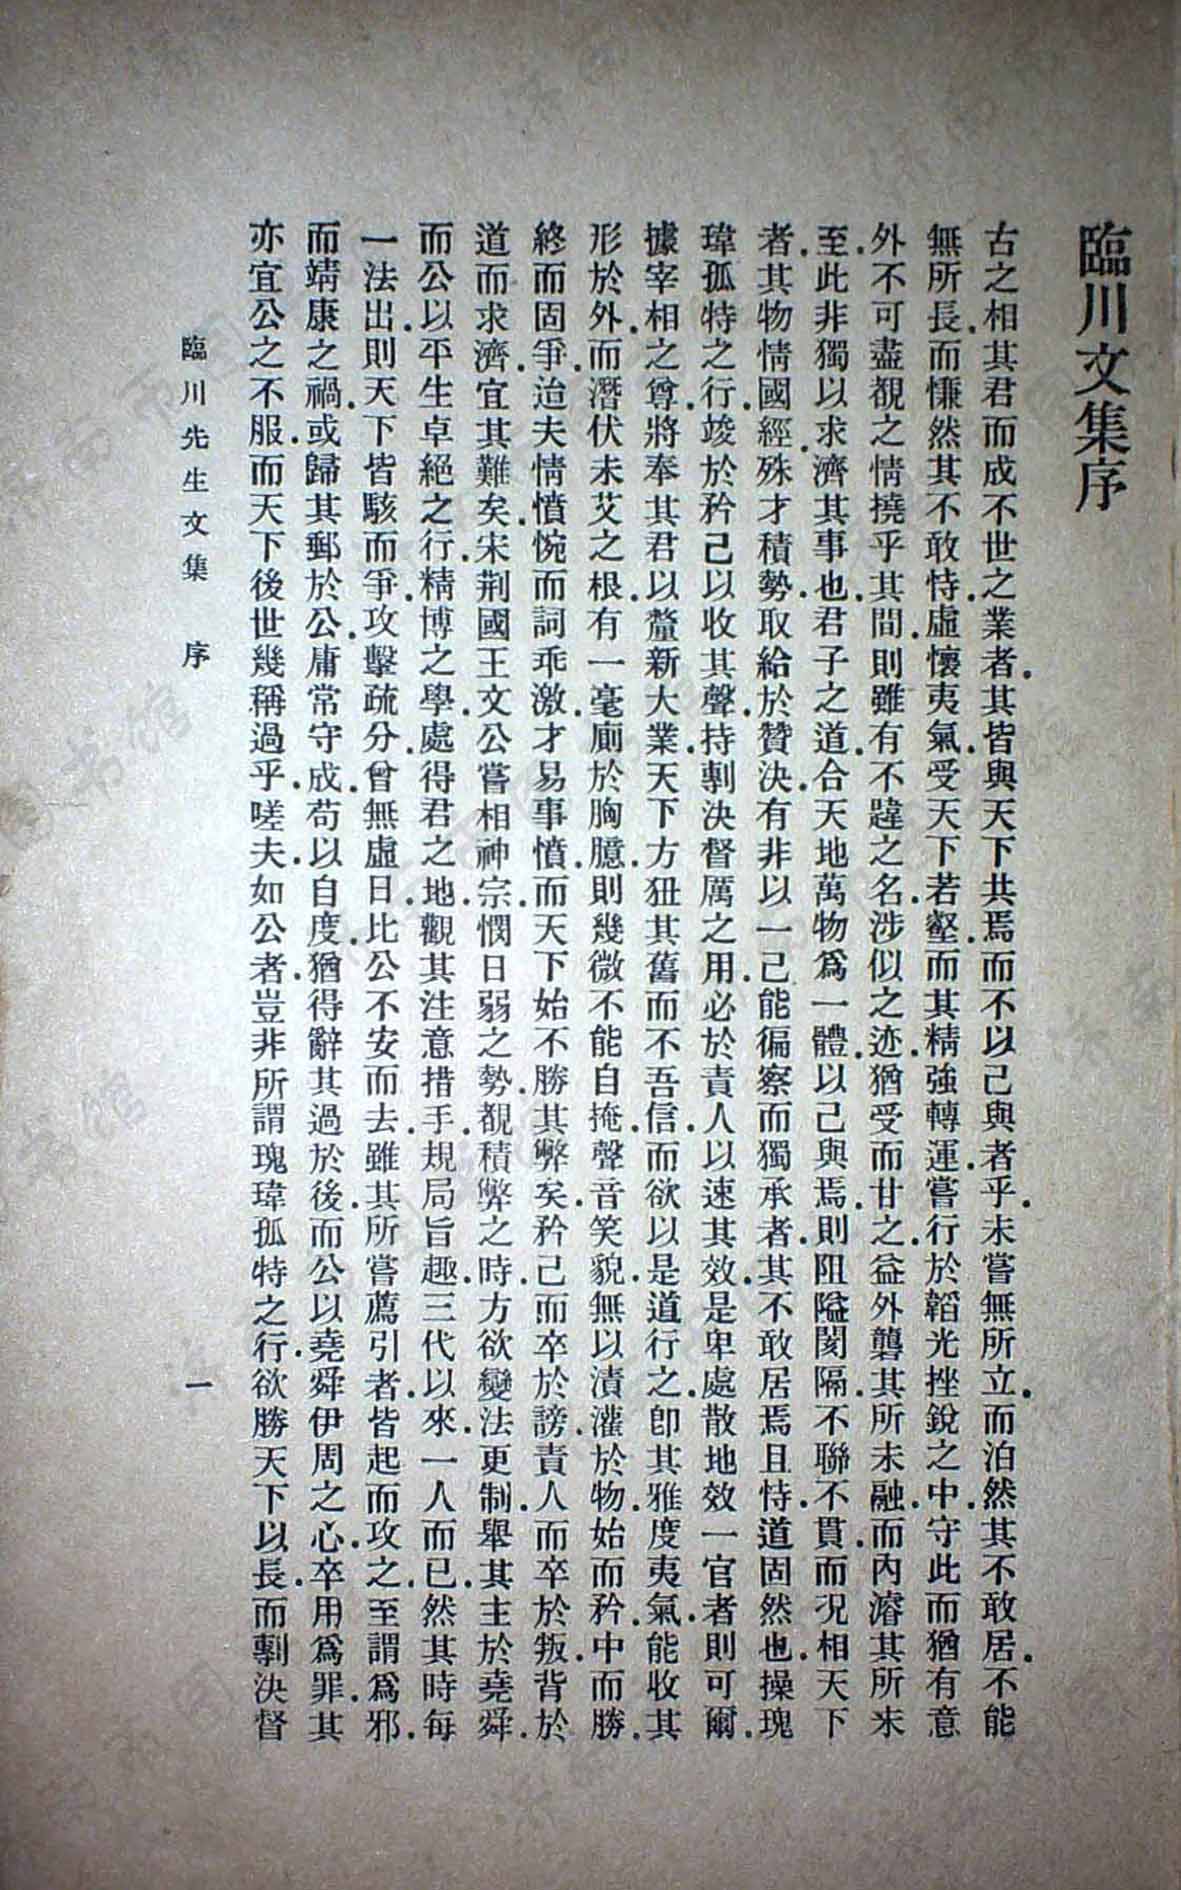 臨川文集序
古之相其君而成不世之業者其皆與天下共焉而不以己與者乎未嘗無所立而泊然其不敢居不能
無所長而慊然其不敢恃虛懷夷氣受天下若壑而其精強轉運嘗行於韜光挫銳之中守此而猶有意
外不可盡覩之情撓乎其間則雖有不韙之名涉似之迹猶受而甘之益外礱其所未融而內濬其所未
至此非獨以求濟其事也君子之道合天地萬物爲一體以己與焉則阻隘閡隔不聯不貫而況相天下
者其物情國經殊才積勢取給於贊決有非以一己能徧察而獨承者其不敢居焉且恃道固然也操瑰
瑋孤特之行竣於矜己以收其聲持剸決督厲之用必於責人以速其效是卑處散地效一官者則可爾
據宰相之尊將奉其君以釐新大業天下方狃其舊而不吾信而欲以是道行之卽其雅度夷氣能收其
形於外而潛伏未艾之根有一毫廁於胸臆則幾微不能自掩聲音笑貌無以漬灌於物始而矜中而勝
終而固爭迨夫情憤惋而詞乖激才易事憤而天下始不勝其弊矣矜己而卒於謗責人而卒於叛背於
道而求濟宜其難矣宋荆國王文公嘗相神宗憫日弱之勢覩積弊之時方欲變法更制舉其主於堯舜
而公以平生卓絕之行精博之學處得君之地觀其注意措手規局旨趣三代以來一人而已然其時每
一法出則天下皆駭而爭攻擊疏分曾無虛日比公不安而去雖其所嘗薦引者皆起而攻之至謂爲邪
而靖康之禍或歸其郵於公庸常守成苟以自度猶得辭其過於後而公以堯舜伊周之心卒用爲罪其
亦宜公之不服而天下後世幾稱過乎嗟夫如公者豈非所謂瑰瑋孤特之行欲勝天下以長而剸決督
臨川先生文集　序
一